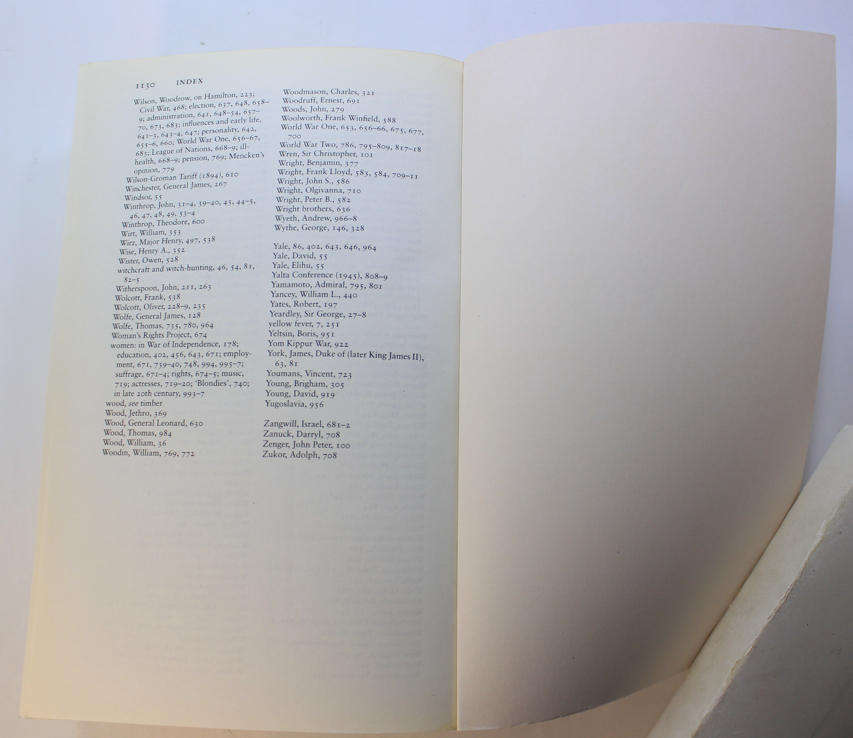 1130 INDEX
Wilson, Woodrow, on Hamilton, 223;
Civil War, 468; election, 637, 648, 658–
9; administration, 641, 648–54, 657–
70, 673, 683; influences and early life,
641–3, 643–4, 647; personality, 642,
655–6, 660; World War One, 656–67,
685; League of Nations, 668–9; ill-
health, 668–9; pension, 769; Mencken's
opinion, 779
Wilson-Groman Tariff (1894), 610
Winchester, General James, 267
Windsor, 55
Winthrop, John, 31–4, 39–40, 43, 44–5,
46, 47, 48, 49, 53–4
Winthrop, Theodore, 600
Wirt, William, 353
Wirz, Major Henry, 497, 538
Wise, Henry A., 352
Wister, Owen, 528
witchcraft and witch-hunting, 46, 54, 81,
82–5
Witherspoon, John, 211, 263
Wolcott, Frank, 538
Wolcott, Oliver, 228–9, 235
Wolfe, General James, 128
Wolfe, Thomas, 735, 780, 964
Woman's Rights Project, 674
women: in War of Independence, 178;
education, 402, 456, 643, 671; employ-
ment, 671, 739–40, 748, 994, 995–7;
suffrage, 671–4; rights, 674–5; music,
719; actresses, 719–20; 'Blondies', 740;
in late 20th century, 993–7
wood, see timber
Wood, Jethro, 369
Wood, General Leonard, 630
Wood, Thomas, 984
Wood, William, 36
Woodin, William, 769, 772
Woodmason, Charles, 321
Woodruff, Ernest, 691
Woods, John, 279
Woolworth, Frank Winfield, 588
World War One, 653, 656–66, 675, 677,
700
World War Two, 786, 795–809, 817–18
Wren, Sir Christopher, 101
Wright, Benjamin, 377
Wright, Frank Lloyd, 583, 584, 709–11
Wright, John S., 586
Wright, Olgivanna, 710
Wright, Peter B., 582
Wright brothers, 656
Wyeth, Andrew, 966–8
Wythe, George, 146, 328
Yale, 86, 402, 643, 646, 964
Yale, David, 55
Yale, Elihu, 55
Yalta Conference (1945), 808–9
Yamamoto, Admiral, 795, 801
Yancey, William L., 440
Yates, Robert, 197
Yeardley, Sir George, 27–8
yellow fever, 7, 251
Yeltsin, Boris, 951
Yom Kippur War, 922
York, James, Duke of (later King James II),
63, 81
Youmans, Vincent, 723
Young, Brigham, 305
Young, David, 919
Yugoslavia, 956
Zangwill, Israel, 681–2
Zanuck, Darryl, 708
Zenger, John Peter, 100
Zukor, Adolph, 708